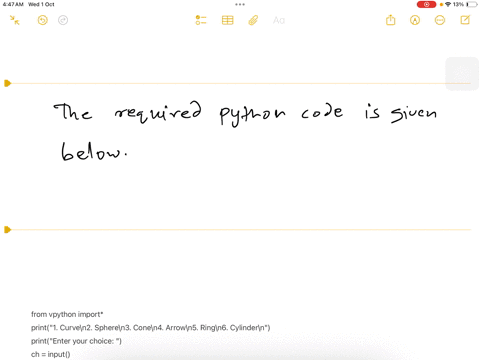 4:47 AM Wed 1 Oct
13%
Aa
The required python code is given
below.
from vpython import*
print("1. Curve\n2. Sphere\n3. Cone\n4. Arrow\n5. Ring\n6. Cylinder\n")
print("Enter your choice: ")
ch = input()